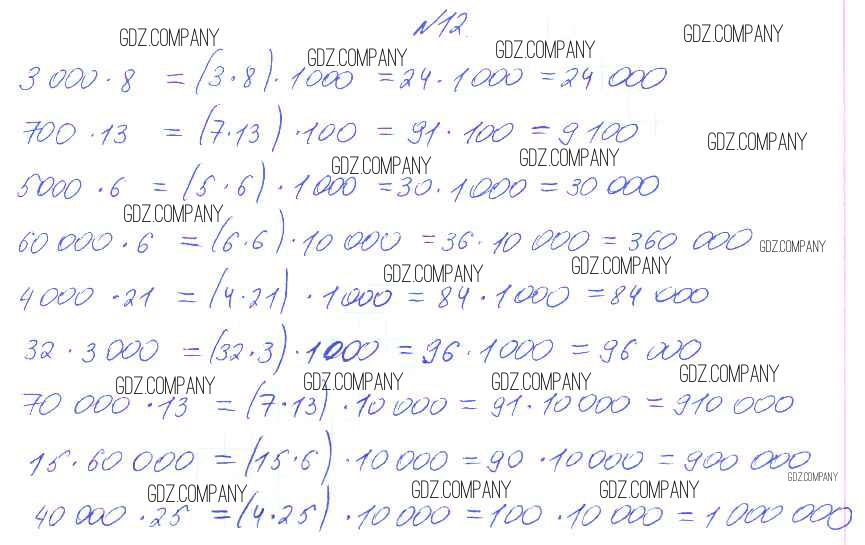 №12.
GDZ.COMPANY GDZ.COMPANY GDZ.COMPANY GDZ.COMPANY
3 000 · 8 = (3 · 8) · 1000 = 24 · 1000 = 24 000
700 · 13 = (7 · 13) · 100 = 91 · 100 = 9 100
GDZ.COMPANY GDZ.COMPANY GDZ.COMPANY
5000 · 6 = (5 · 6) · 1000 = 30 · 1000 = 30 000
GDZ.COMPANY
60 000 · 6 = (6 · 6) · 10 000 = 36 · 10 000 = 360 000
GDZ.COMPANY GDZ.COMPANY GDZ.COMPANY
4000 · 21 = (4 · 21) · 1000 = 84 · 1000 = 84 000
32 · 3 000 = (32 · 3) · 1000 = 96 · 1000 = 96 000
GDZ.COMPANY GDZ.COMPANY GDZ.COMPANY GDZ.COMPANY
70 000 · 13 = (7 · 13) · 10 000 = 91 · 10 000 = 910 000
15 · 60 000 = (15 · 6) · 10 000 = 90 · 10 000 = 900 000
GDZ.COMPANY GDZ.COMPANY GDZ.COMPANY GDZ.COMPANY
40 000 · 25 = (4 · 25) · 10 000 = 100 · 10 000 = 1 000 000